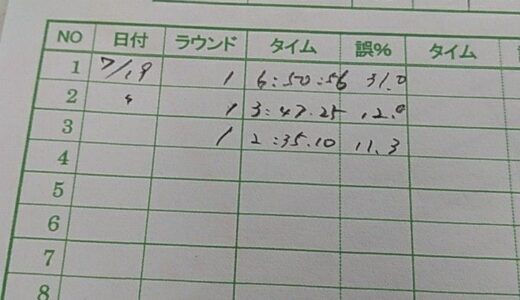 NO 日付 ラウンド タイム 誤% タイム
1 7/19 1 6:50:56 31.0
2 〃 1 3:47.25 12.0
3 1 2:35.10 11.3
4
5
6
7
8